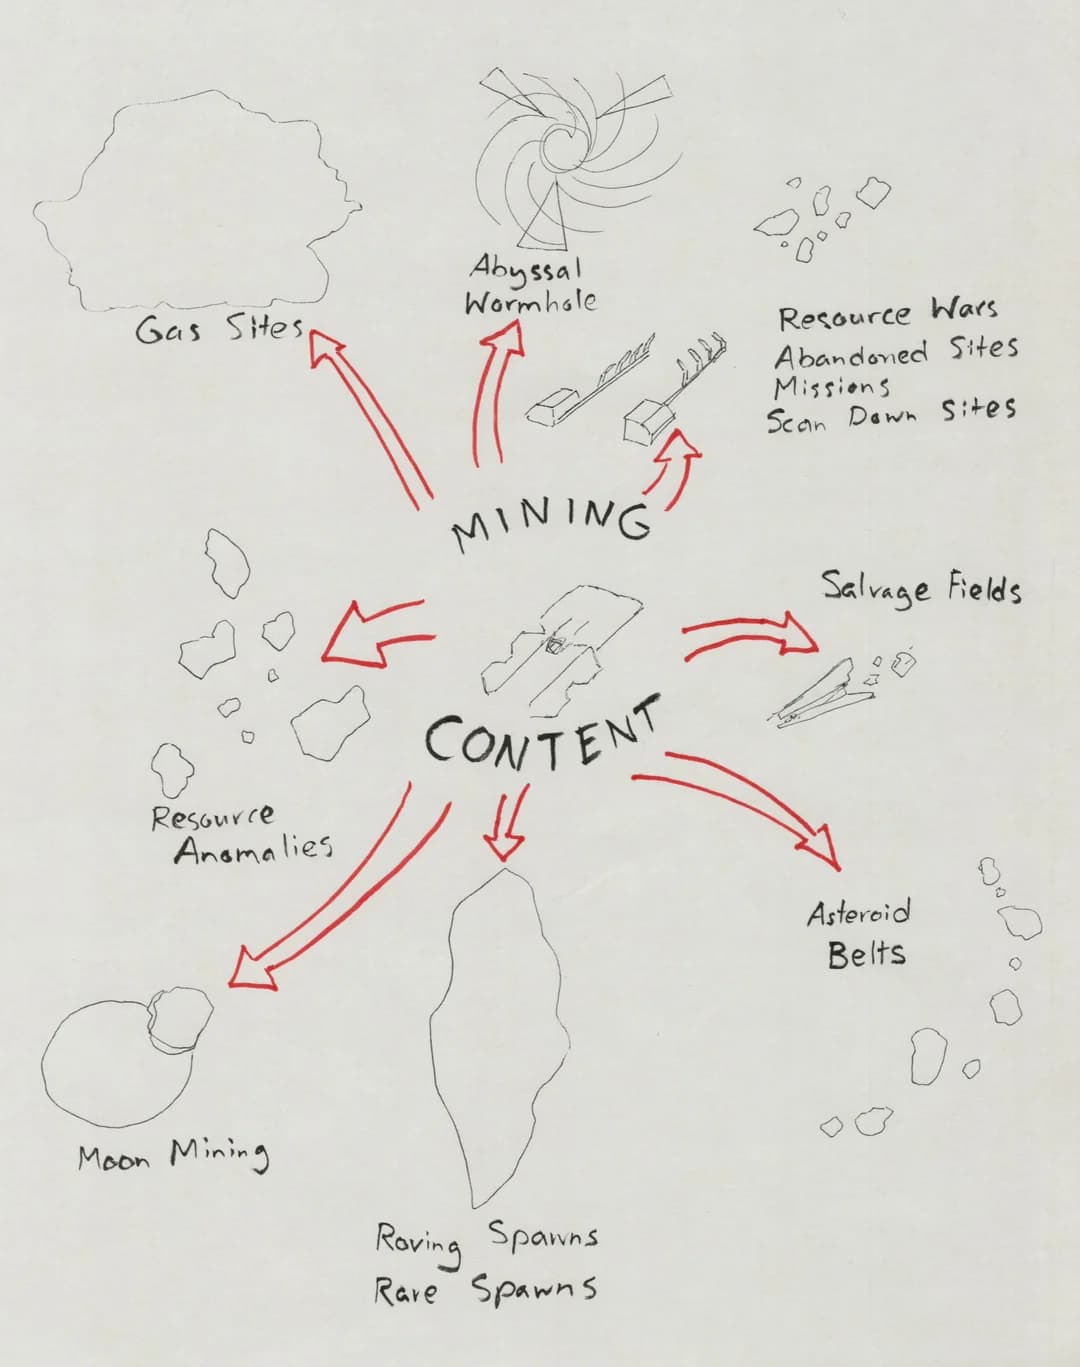 Abyssal
Wormhole
Gas Sites
Resource Wars
Abandoned Sites
Missions
Scan Down Sites
MINING
Salvage Fields
CONTENT
Resource
Anomalies
Asteroid
Belts
Moon Mining
Roving Spawns
Rare Spawns